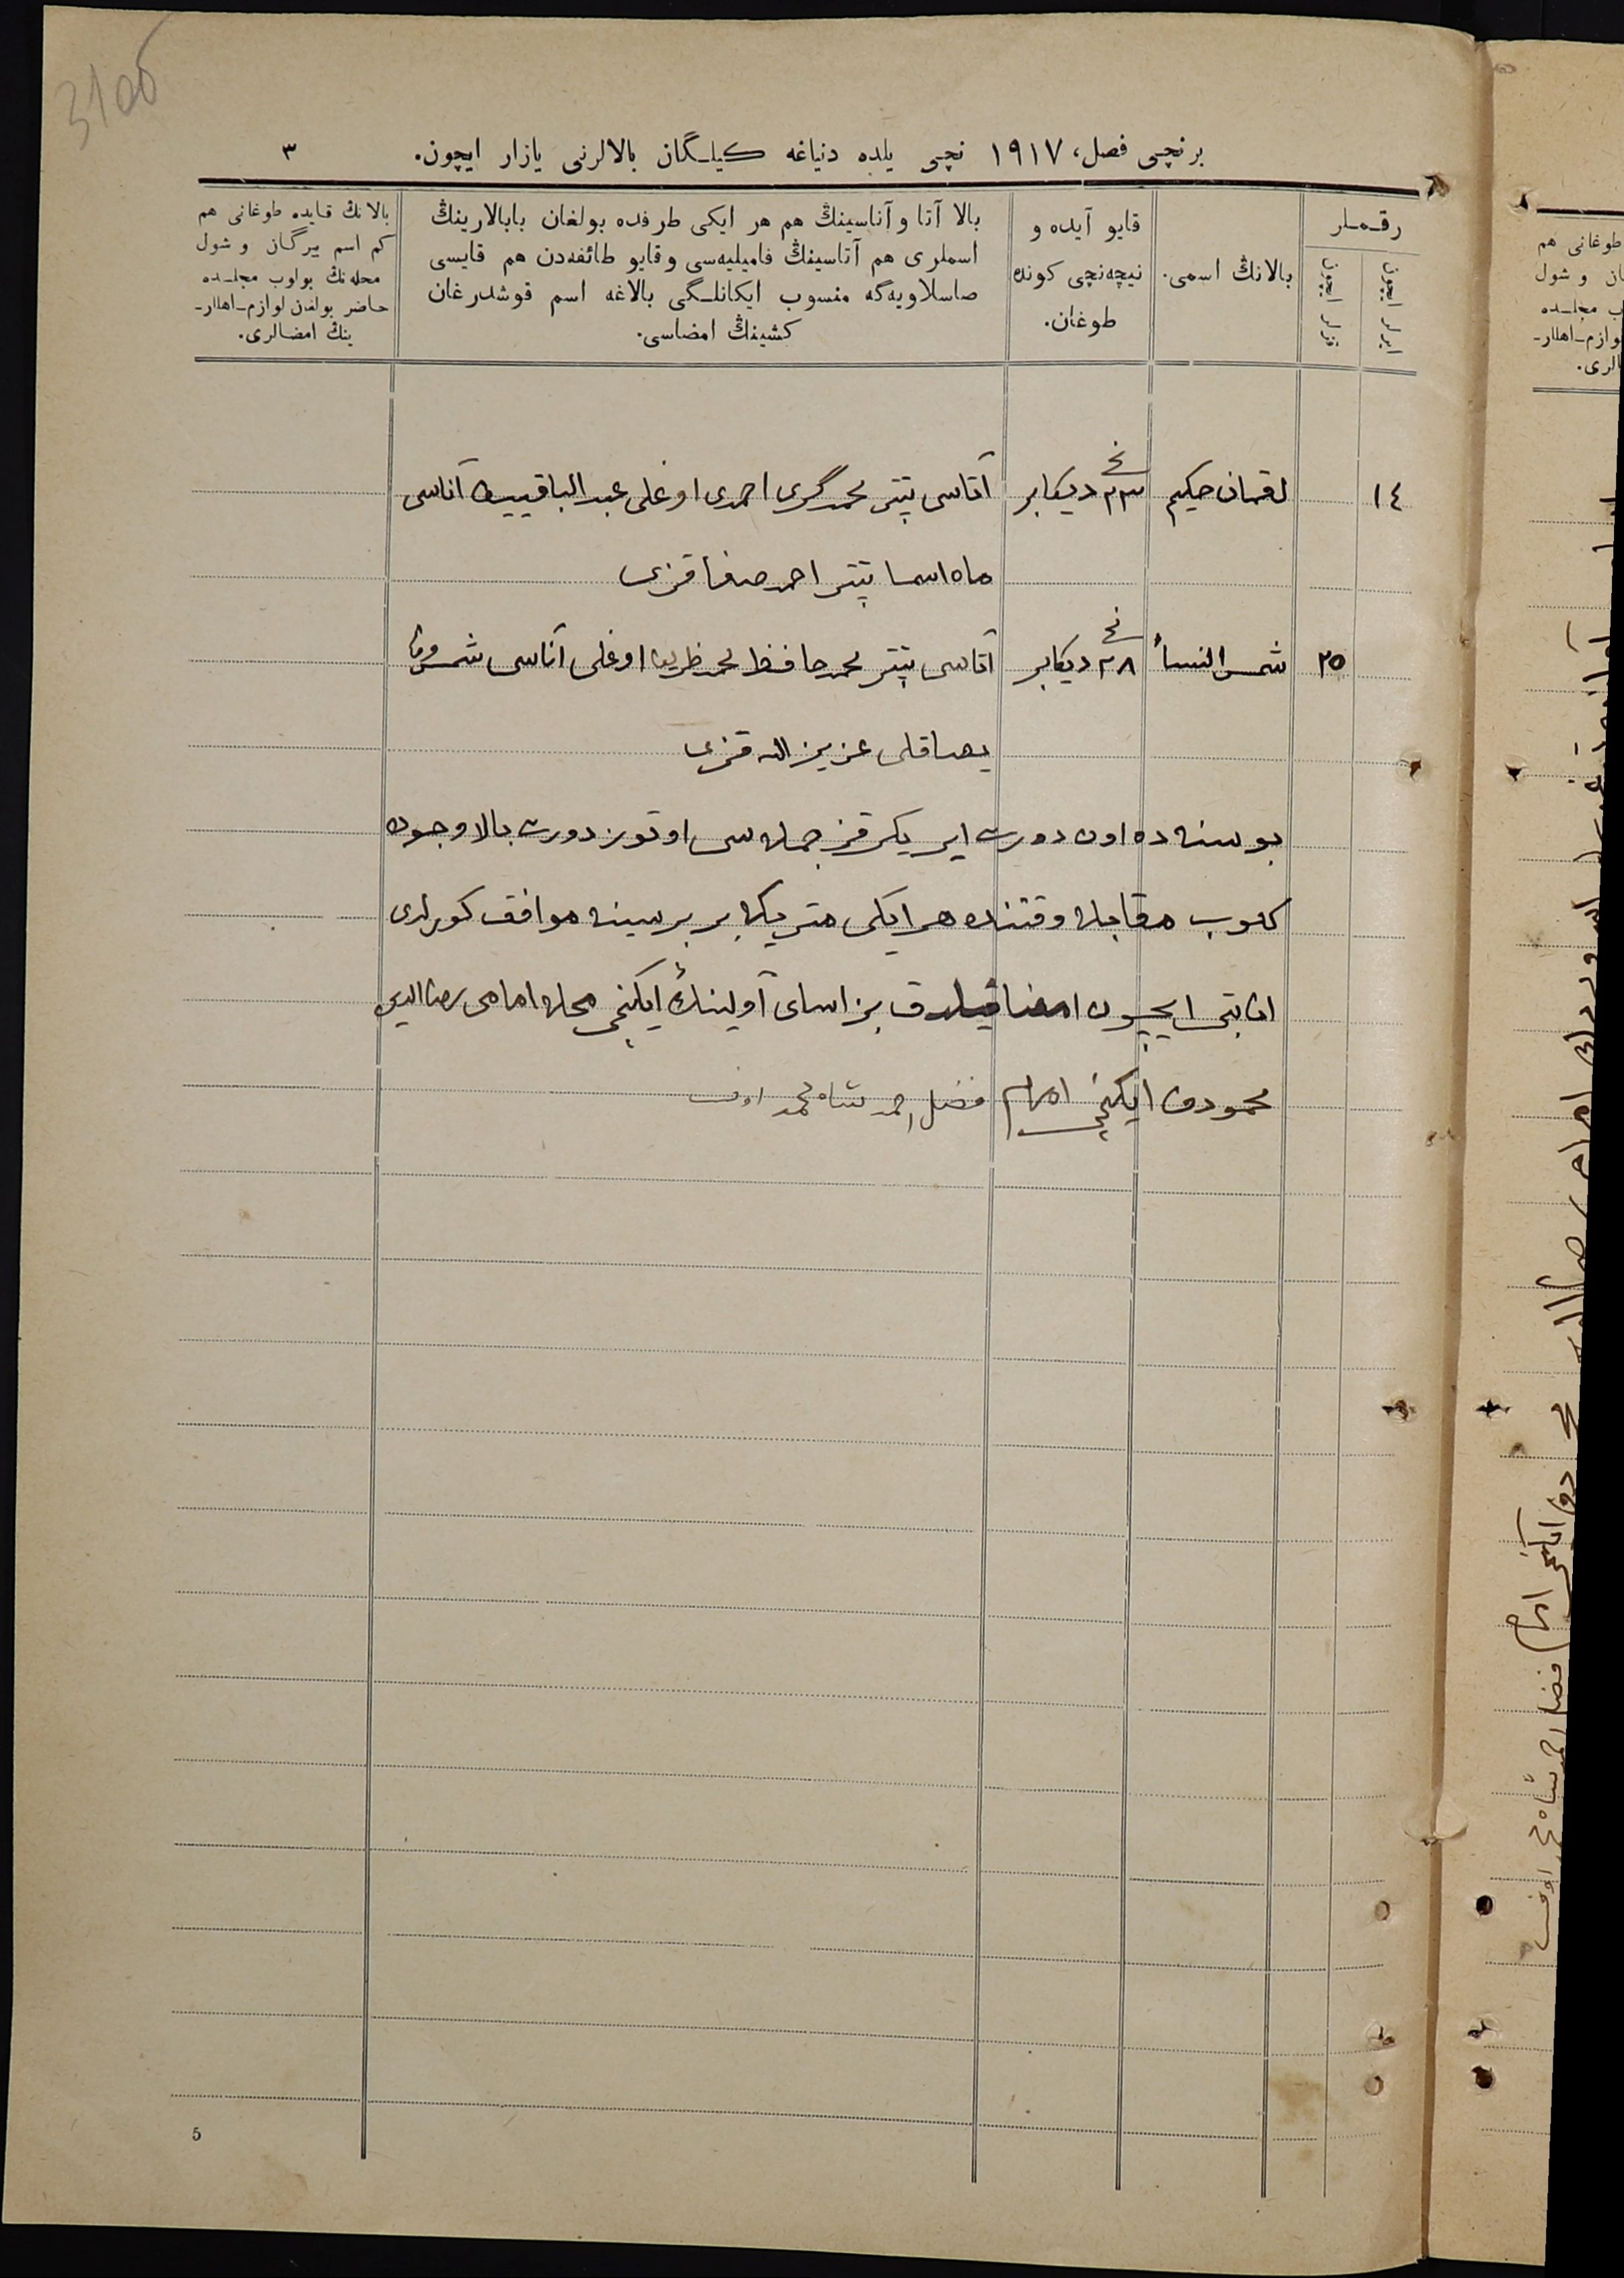 31об
برنچی فصل، ١٩١٧ نچی یلده دنیاغه کیلـگان بالالرنی یازار ایچون.
٣
رقـمـلر
ایرلر ایچون
قزلر ایچون
بالانڭ اسمی.
قایو آیده و
نیچه‌نچی کونده
طوغان.
بالا آتا و آناسینڭ هم هر ایکی طرفده بولغان بابالارینڭ
اسملری هم آتاسینڭ فامیلیه‌سی و قایو طائفه‌دن هم قایسی
صاسلاویه‌گه منسوب ایکانلـگی بالاغه اسم قوشدرغان
کشینڭ امضاسی.
بالانڭ قایده طوغانی هم
کم اسم بیرگان و شول
محله‌نڭ بولوب مجلـسده
حاضر بولغدن لوازم-اهللر-
ینڭ امضالری.
١٤ لقمان حکیم ٢٣ نچی دیکابر آتاسی پتتر محمدگری احمدی اوغلی عبدالباقییف آناسی
ماه اسما پتتر احمدصفا قزی
٢٥ شمس النسأ ٢٨ نچی دیکابر آتاسی پتتر محمدحافظ محمدظریف اوغلی آناسی
یصاقلی عزیزالله قزی
بو سنه ده اون دورت ایر یکرمی قز جمله سی اوتوز دورت بالا وجوده
کلوب مقابله وقتنده هر ایکی متریکه بر برسینه موافق کورلدی
اثباتی ایچون امضا قیلدق بز اسای آولینڭ ایکنچی محله امامی رضاالدین
محمودف ایکنچی امام فضل احمد شاه محمد اوف
5